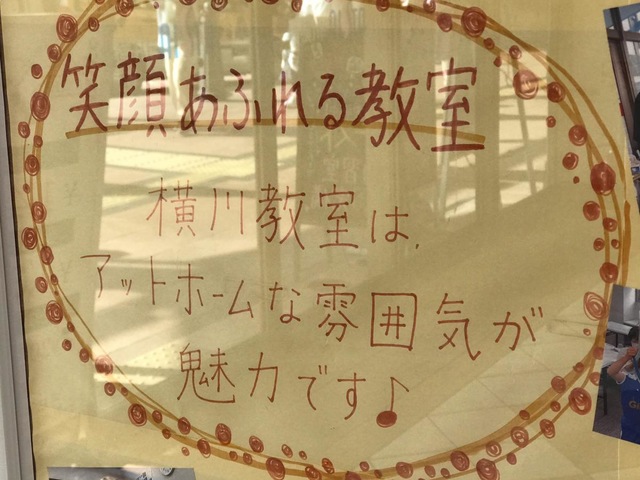 笑顔あふれる教室
横川教室は、
アットホームな雰囲気が
魅力です♪